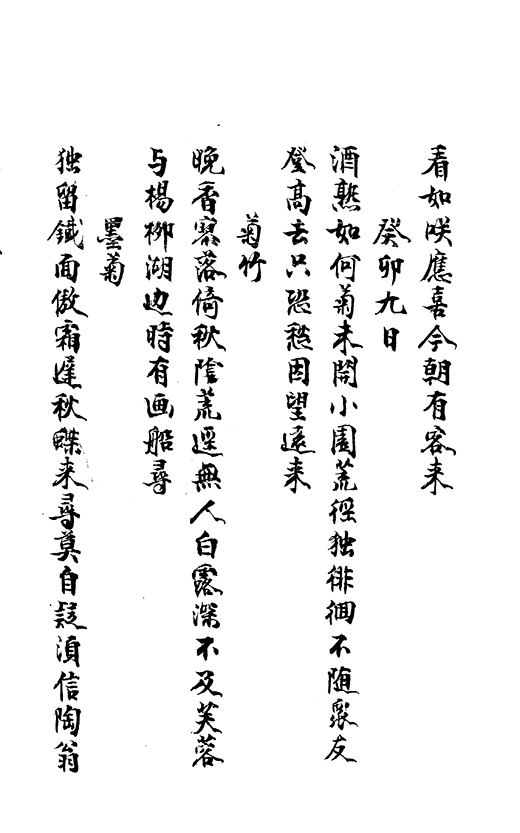 看如咲應喜今朝有客来
癸卯九日
酒熟如何菊未開小園荒徑独徘徊不随衆友
登高去只恐愁因望遠来
菊竹
晚香寥落倚秋陰荒逕無人白露深不及芙蓉
与楊柳湖边時有画船尋
墨菊
独留鐵面傲霜遅秋蝶来尋莫自疑湏信陶翁